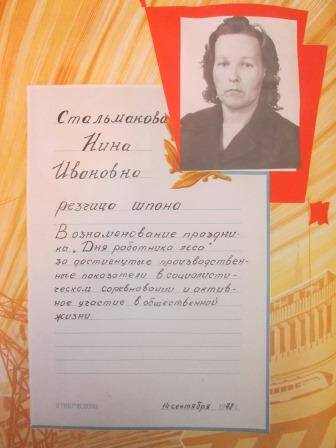 Стальмакова
Нина
Ивановна
резчица шпона
В ознаменование праздни-
ка „Дня работника леса"
за достигнутые производствен-
ные показатели в социалисти-
ческом соревновании и актив-
ное участие в общественной
жизни.
14 сентября 1978 г.